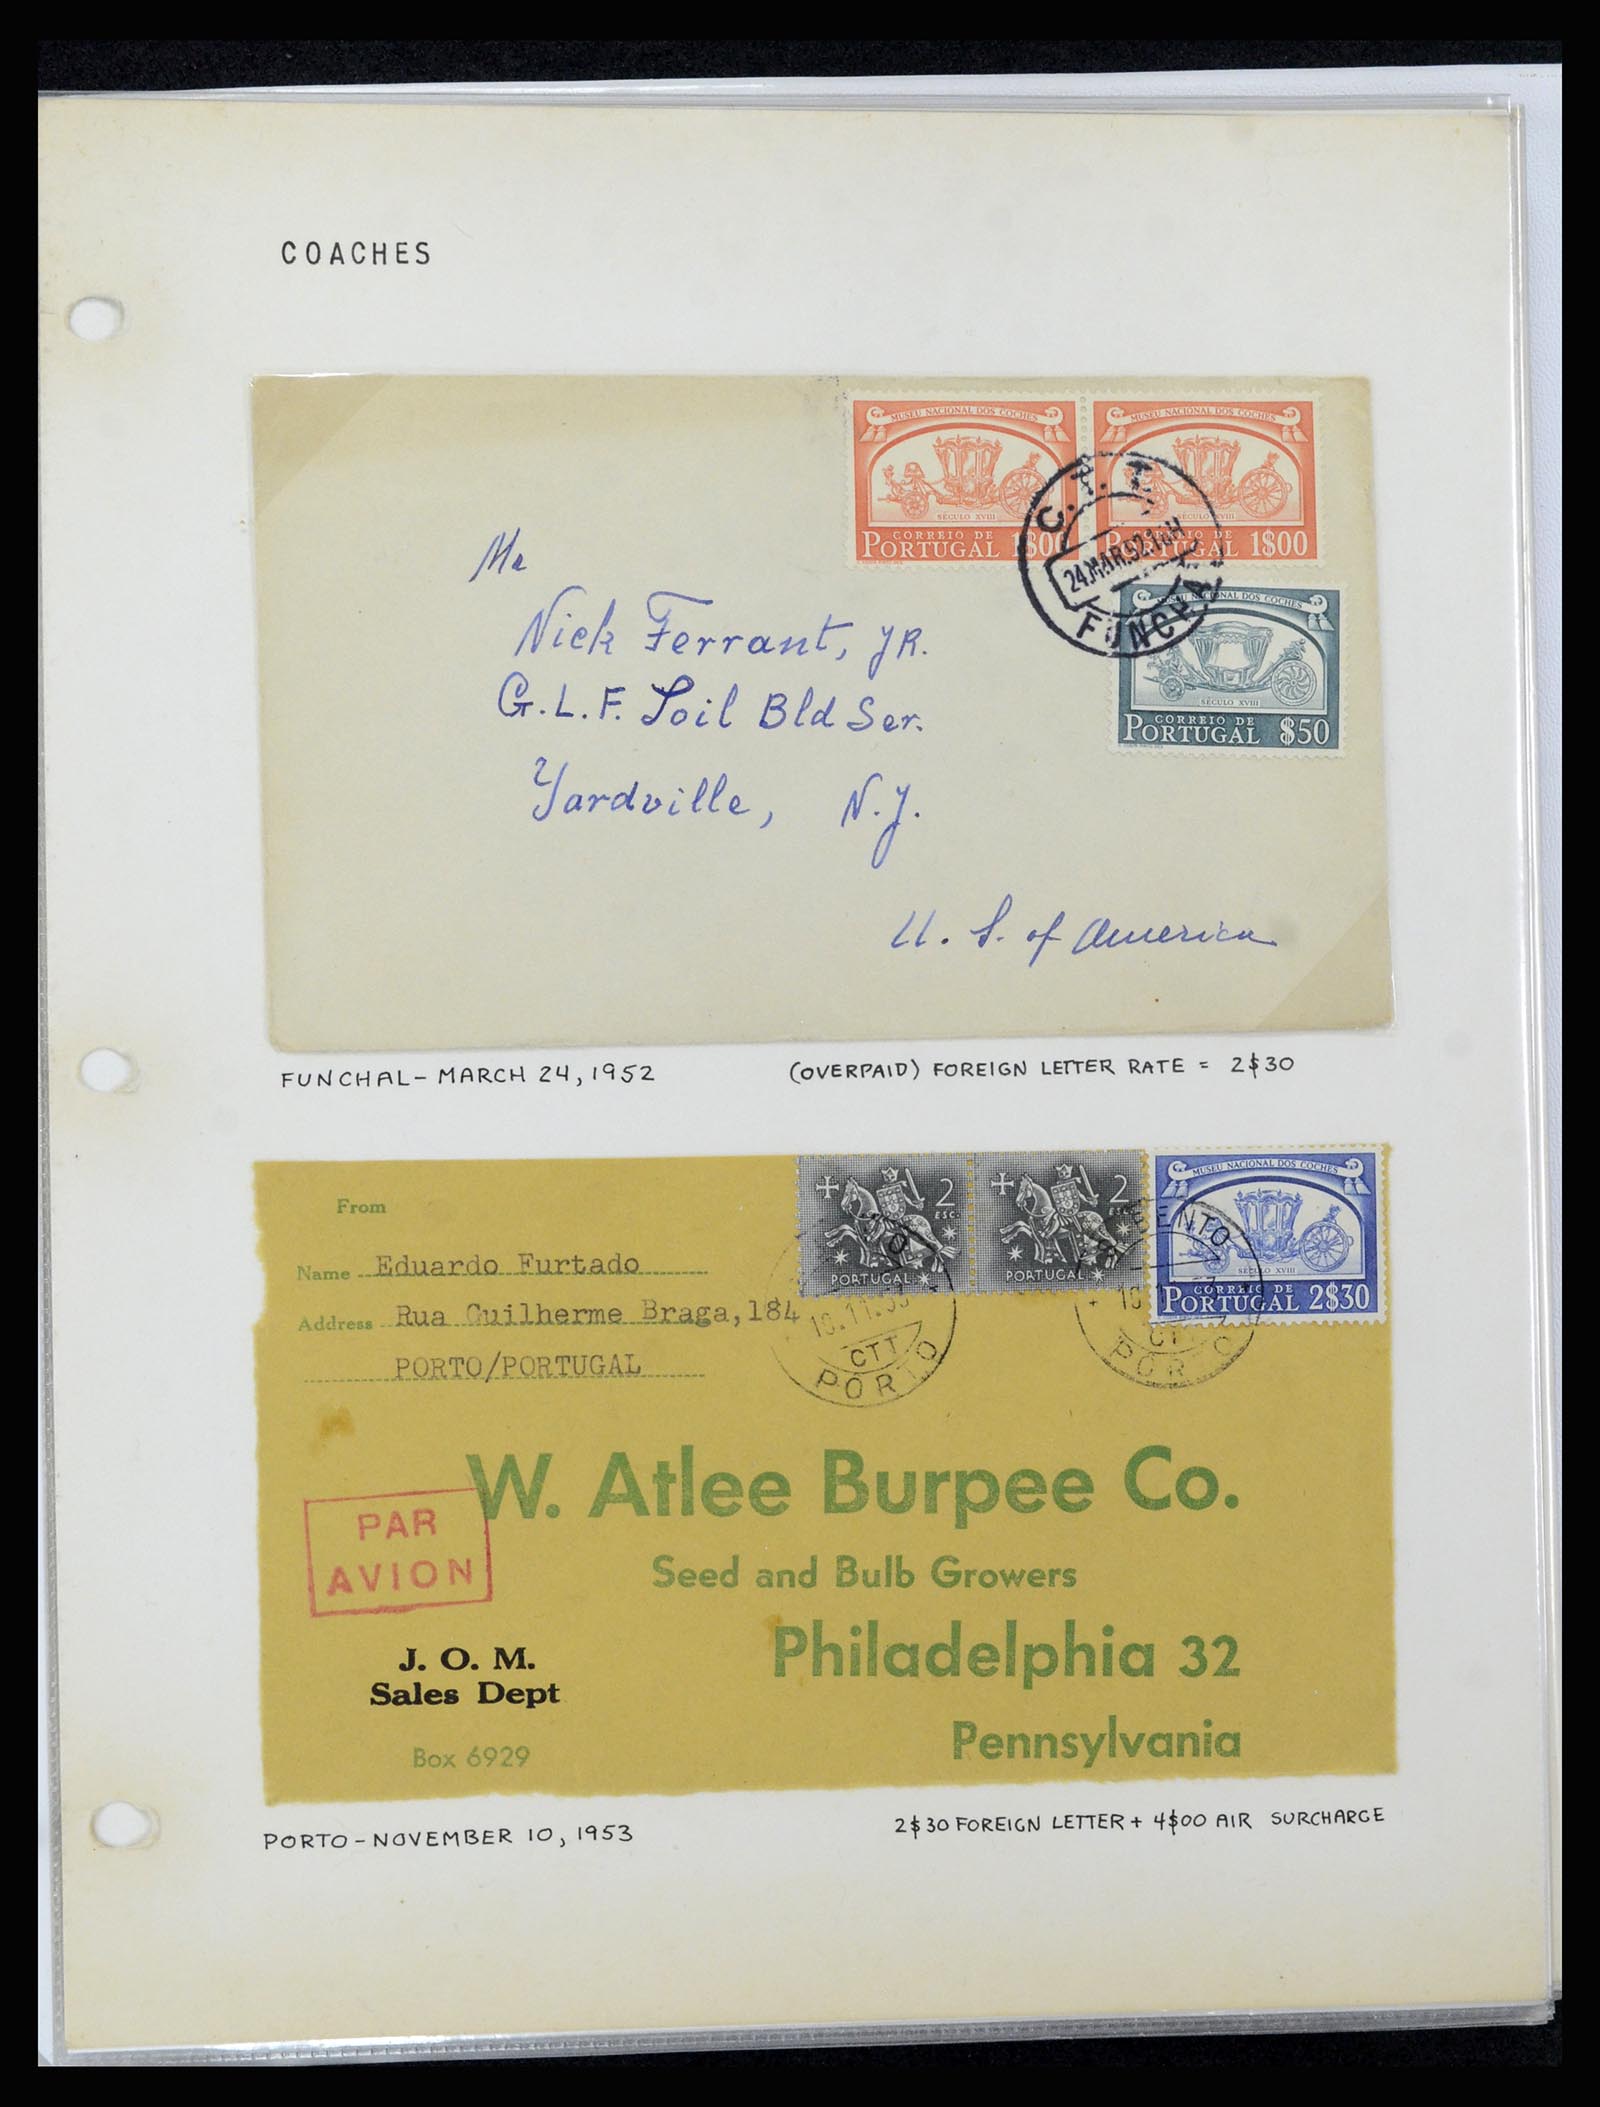 COACHES
MUSEU NACIONAL DOS COCHES
SÉCULO XVIII
CORREIO DE
PORTUGAL 1$00
MUSEU NACIONAL DOS COCHES
SÉCULO XVIII
CORREIO DE
PORTUGAL 1$00
C.T.T.
24.MAR.52
FUNCHAL
MUSEU NACIONAL DOS COCHES
SÉCULO XVIII
CORREIO DE
PORTUGAL $50
Mr
Nick Ferrant, JR.
G.L.F. Soil Bld Ser.
Yardville, N.J.
U. S. of America
FUNCHAL - MARCH 24, 1952 (OVERPAID) FOREIGN LETTER RATE = 2$30
2 ESC.
PORTUGAL
2 ESC.
PORTUGAL
MUSEU NACIONAL DOS COCHES
SÉCULO XVIII
CORREIO DE
PORTUGAL 2$30
10.11.53
CTT
PORTO
BENTO
CTT
PORTO
From
Name Eduardo Furtado
Address Rua Guilherme Braga, 184
PORTO/PORTUGAL
W. Atlee Burpee Co.
Seed and Bulb Growers
Philadelphia 32
Pennsylvania
PAR
AVION
J. O. M.
Sales Dept
Box 6929
PORTO - NOVEMBER 10, 1953 2$30 FOREIGN LETTER + 4$00 AIR SURCHARGE